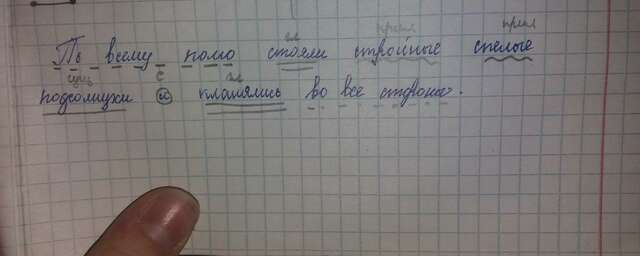 гл прил прил
По всему полю стояли стройные спелые
сущ с гл
подсолнухи и клонились во все стороны.